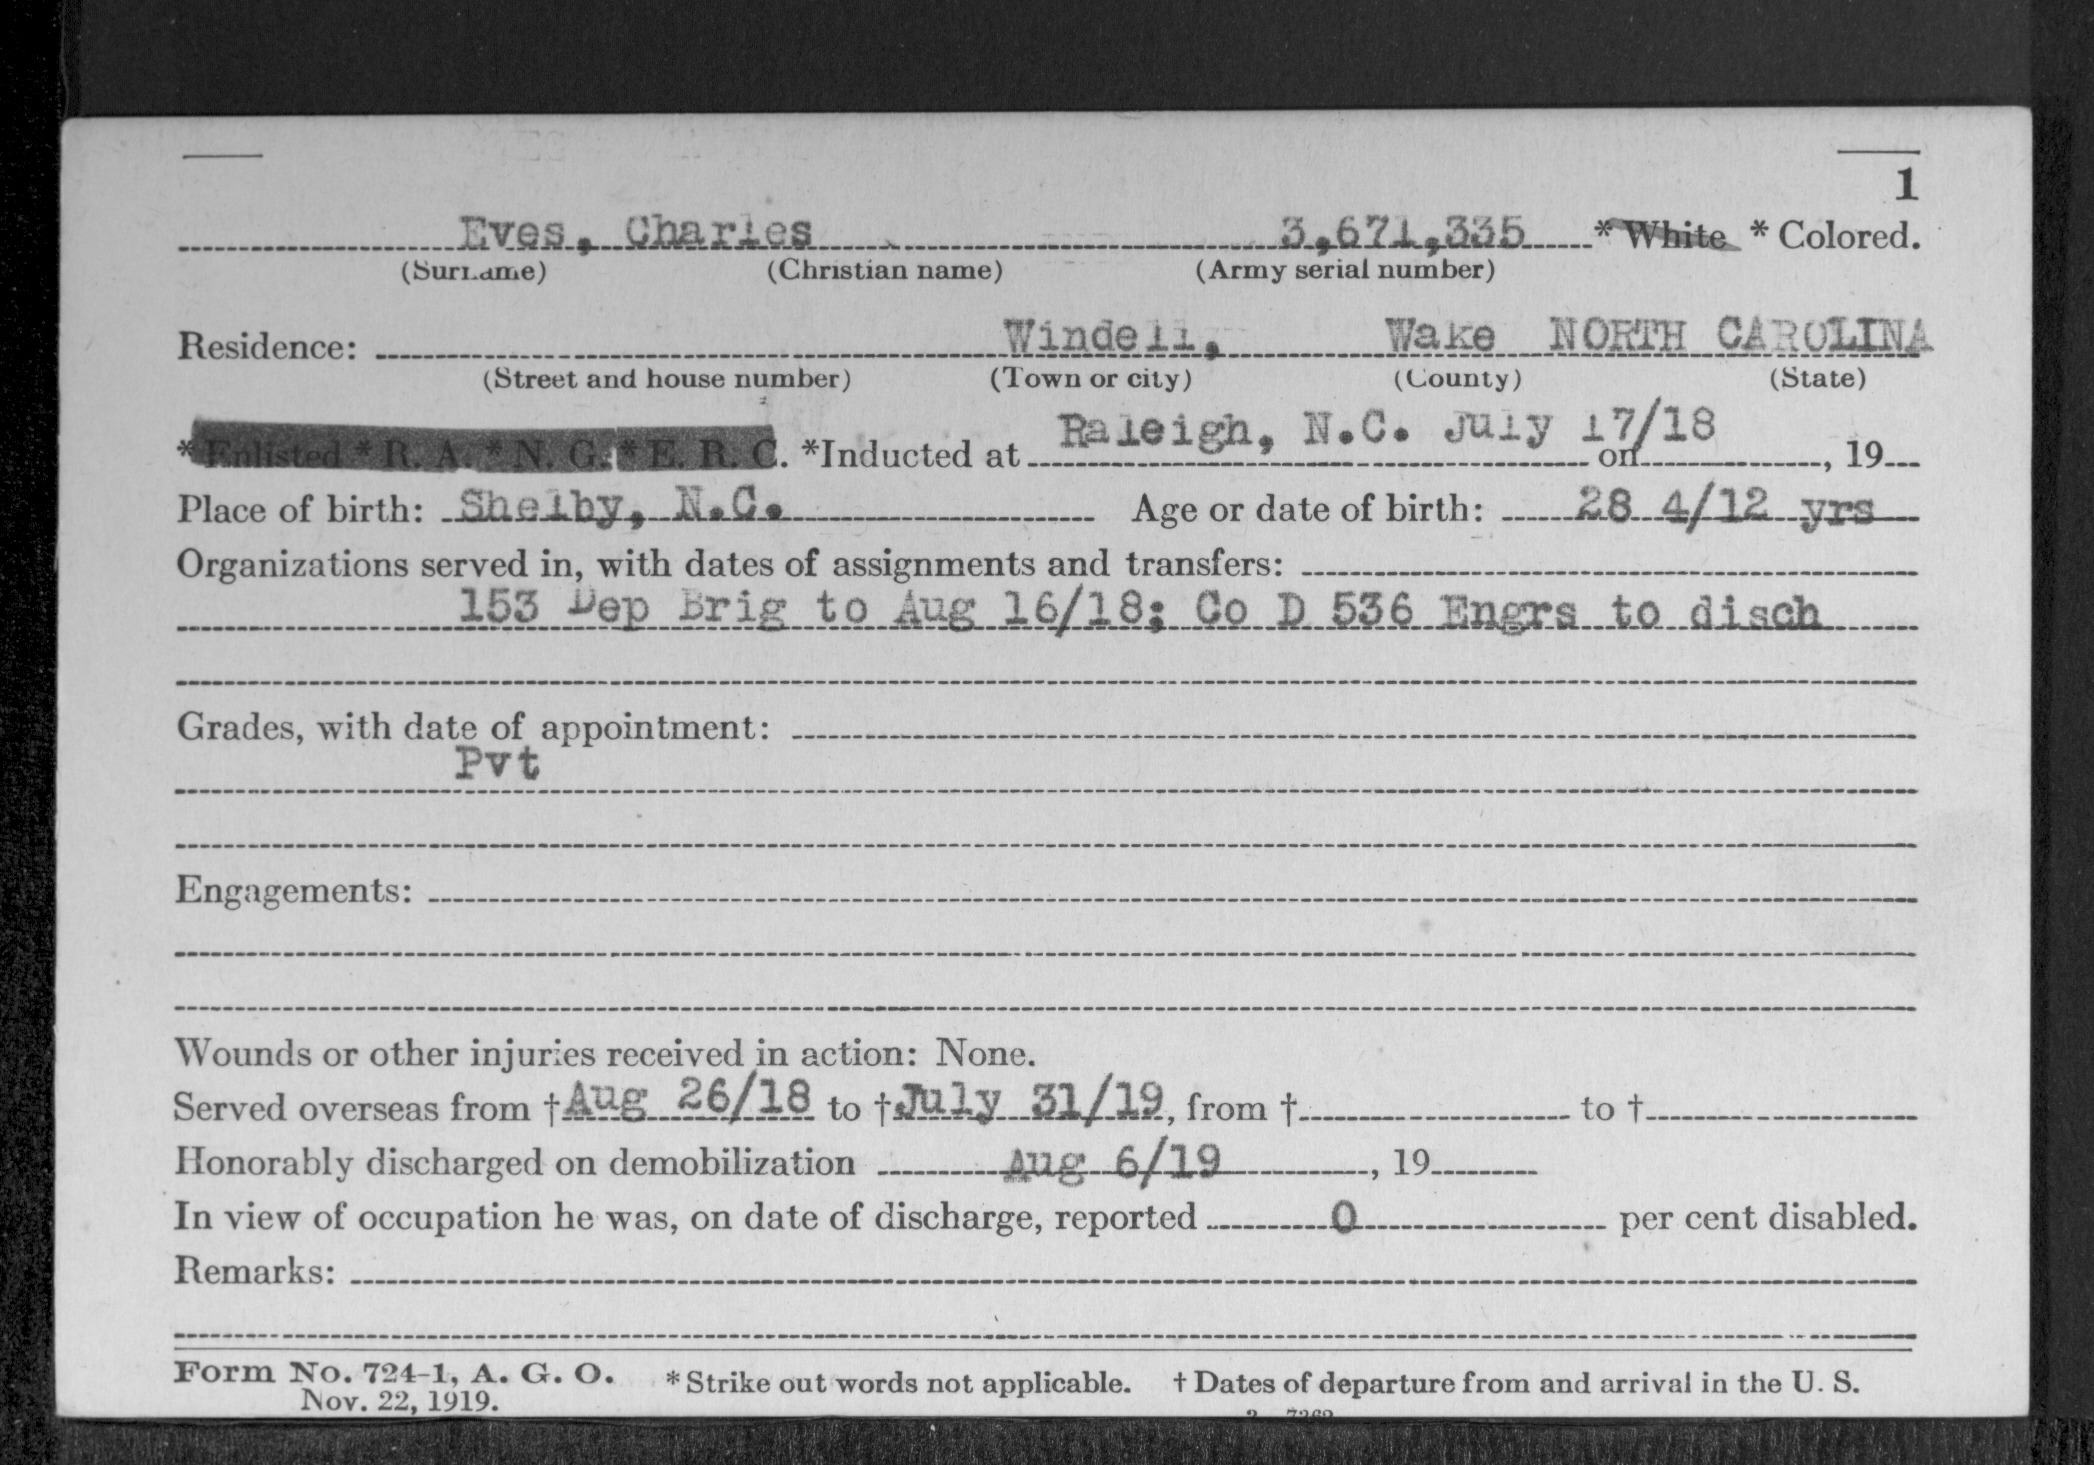 1
Eves, Charles 3,671,335 * White * Colored.
(Surname) (Christian name) (Army serial number)
Residence: Windell, Wake NORTH CAROLINA
(Street and house number) (Town or city) (County) (State)
* Enlisted * R. A. * N. G. * E. R. C. *Inducted at Raleigh, N.C. July 17/18 on , 19
Place of birth: Shelby, N.C. Age or date of birth: 28 4/12 yrs
Organizations served in, with dates of assignments and transfers:
153 Dep Brig to Aug 16/18; Co D 536 Engrs to disch
Grades, with date of appointment:
Pvt
Engagements:
Wounds or other injuries received in action: None.
Served overseas from † Aug 26/18 to † July 31/19, from † to †
Honorably discharged on demobilization Aug 6/19 , 19
In view of occupation he was, on date of discharge, reported 0 per cent disabled.
Remarks:
Form No. 724-1, A. G. O. * Strike out words not applicable. † Dates of departure from and arrival in the U. S.
Nov. 22, 1919.